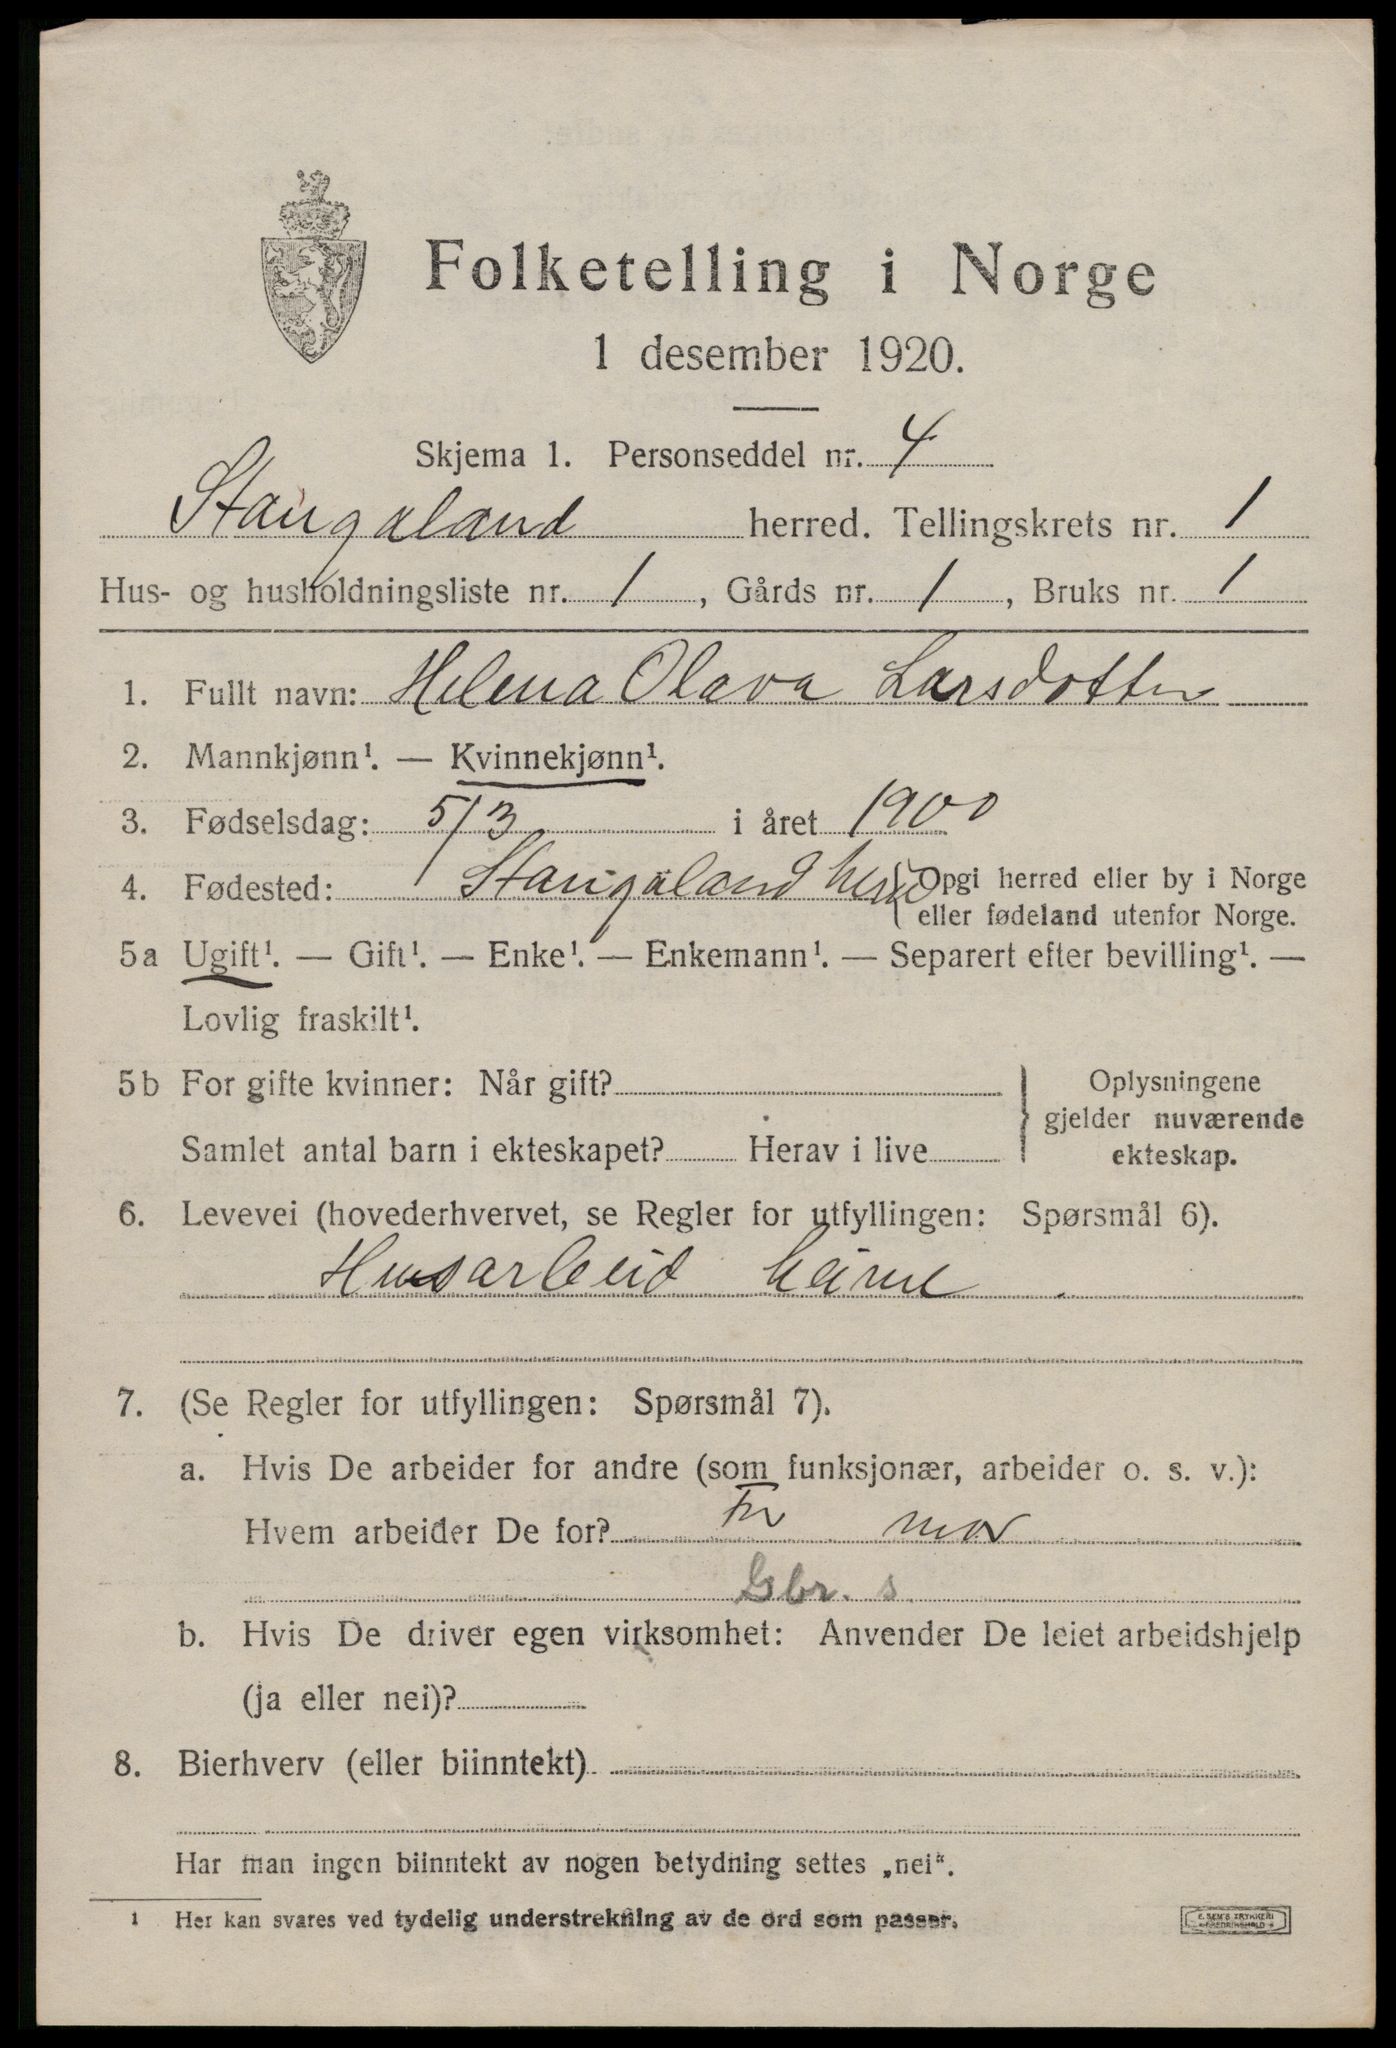 Folketelling i Norge
1 desember 1920.
Skjema 1. Personseddel nr. 4
Stangaland herred. Tellingskrets nr. 1
Hus- og husholdningsliste nr. 1, Gårds nr. 1, Bruks nr. 1
1. Fullt navn: Helena Olava Larsdotter
2. Mannkjønn¹. — Kvinnekjønn¹.
3. Fødselsdag: 5/3 i året 1900
4. Fødested: Stangaland herre {Opgi herred eller by i Norge
eller fødeland utenfor Norge.
5a Ugift¹. — Gift¹. — Enke¹. — Enkemann¹. — Separert efter bevilling¹. —
Lovlig fraskilt¹.
5b For gifte kvinner: Når gift?
Samlet antal barn i ekteskapet? Herav i live
} Oplysningene
gjelder nuværende
ekteskap.
6. Levevei (hovederhvervet, se Regler for utfyllingen: Spørsmål 6).
Husarbeid heime
7. (Se Regler for utfyllingen: Spørsmål 7).
a. Hvis De arbeider for andre (som funksjonær, arbeider o. s. v.):
Hvem arbeider De for? For mor
Gbr. s
b. Hvis De driver egen virksomhet: Anvender De leiet arbeidshjelp
(ja eller nei)?
8. Bierhverv (eller biinntekt)
Har man ingen biinntekt av nogen betydning settes „nei“.
1 Her kan svares ved tydelig understrekning av de ord som passer.
E. SEM'S TRYKKERI
FREDRIKSHALD